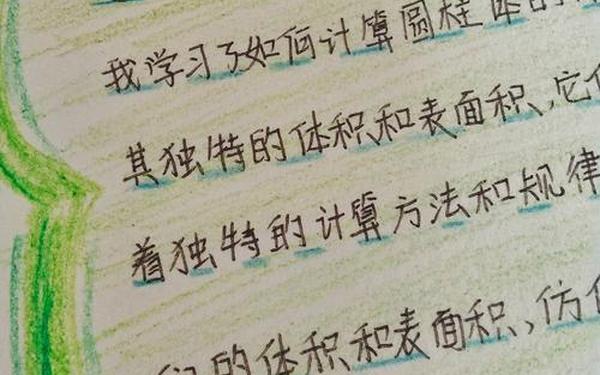 我学习了如何计算圆柱体的
其独特的体积和表面积,它
着独特的计算方法和规律
们的体积和表面积,仿